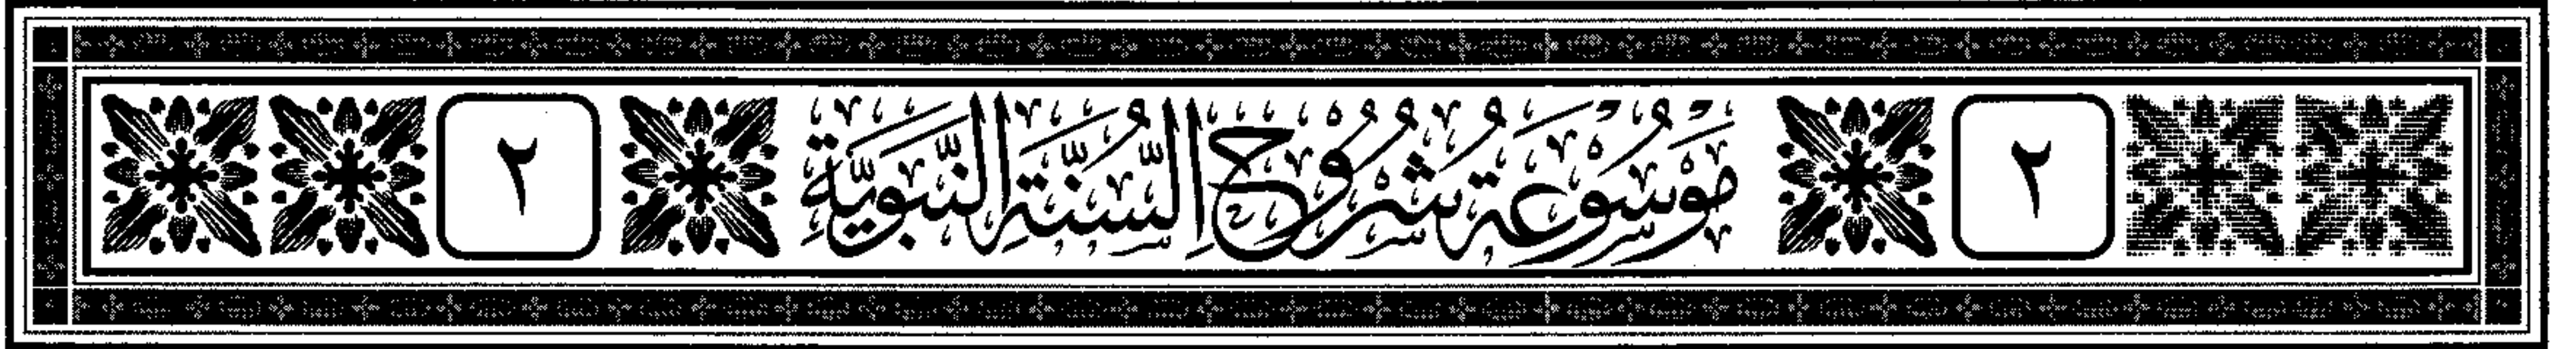 ٢ مَوْسُوعَةُ شُرُوحِ السُّنَّةِ النَّبَوِيَّةِ ٢